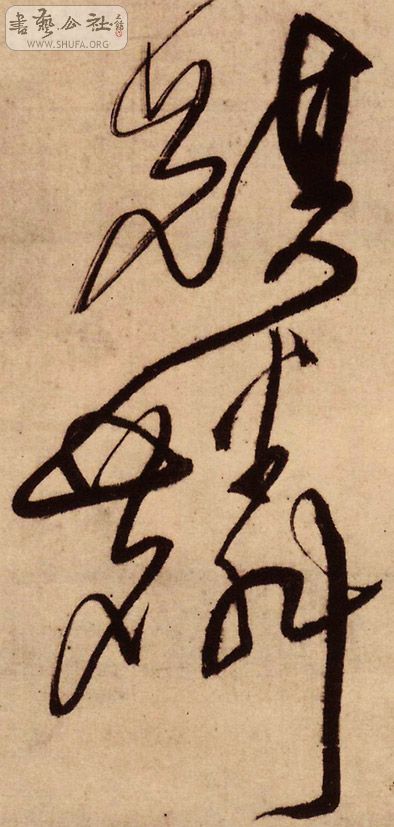 書藝公社
WWW.SHUFA.ORG
麒麟